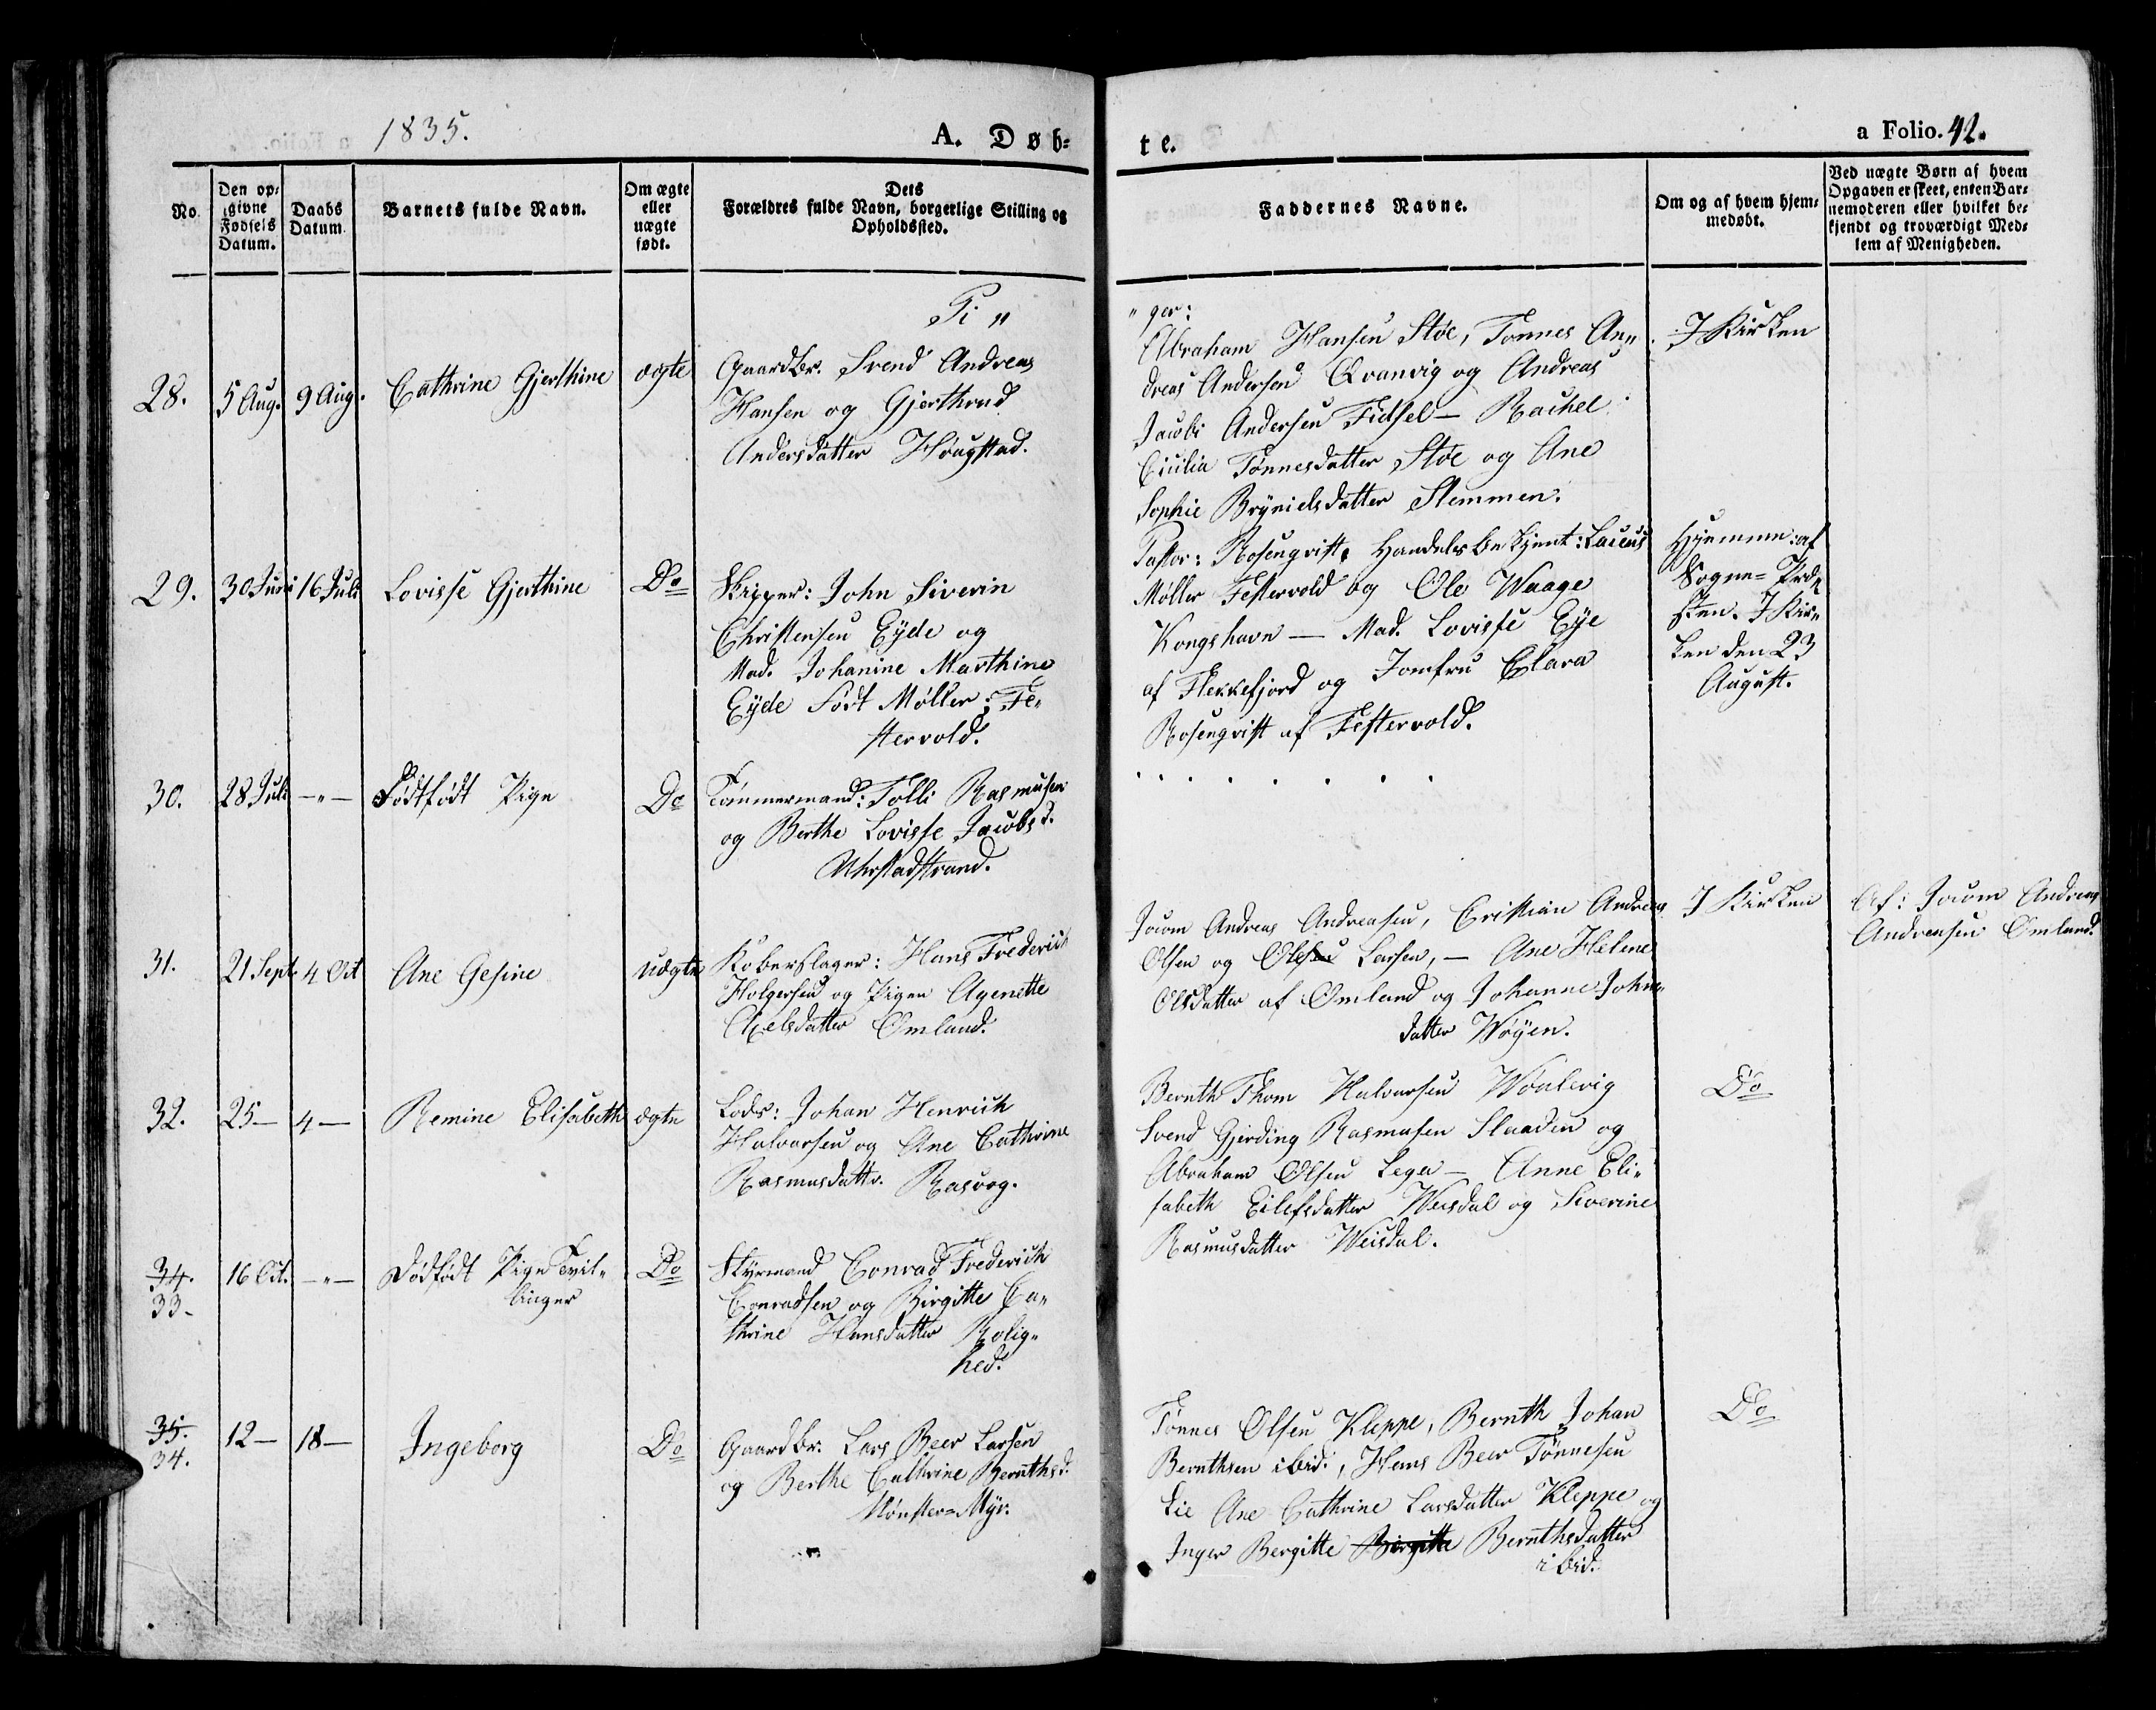 1835.
A. Døb-
te.
a Folio. 42.
No.
Den op-
givne
Fødsels
Datum.
Daabs
Datum.
Barnets fulde Navn.
Om ægte
eller
uægte
født.
Dets
Forældres fulde Navn, borgerlige Stilling og
Opholdssted.
Faddernes Navne.
Om og af hvem hjem-
medøbt.
Ved uægte Børn af hvem
Opgaven er skeet, enten Bar-
nemoderen eller hvilket be-
kjendt og troværdigt Med-
lem af Menigheden.
Pi „
„ ger:
28.
5 Aug.
9 Aug.
Cathrine Gjerthine
ægte
Gaardbr. Svend Andreas
Hansen og Gjerthrud
Andersdatter Høugstad.
Abraham Hansen Støe, Tønnes An„
dreas Andersen Qvanvig og Andreas
Jacobi Andersen Fidsel — Rachel
Cicilia Tønnesdatter Støe og Ane
Sophie Brynielsdatter Stemmen.
I Kirken
29.
30 Juni
16 Juli
Lovisse Gjerthine
Do
Skipper: John Siverin
Christensen Eyde og
Mad. Johanine Marthine
Eyde Født Møller: Fe„
stervold.
Pastor: Rosenqvist, Handelsbetjent: Laurus
Møller Festervold og Ole Waage
Kongshavn — Mad. Lovisse Eye
af Flekkefjord og Jomfru Clara
Rosenqvist af Festervold.
Hjemme: af
Sogne- Præ„
sten. I Kir„
ken den 23
August.
30.
28 Juli
— „ —
Dødfødt Pige
Do
Tømmermand: Tølli Rasmusen
og Berthe Lovisse Jacobsd.
Uhrstadstrand.
. . . . . . . .
31.
21. Sept.
4 Oct
Ane Gesine
uægte
Koberslager: Hans Frederich
Holgersen og Pigen Agenette
Axelsdatter Omland.
Jocom Andreas Andreasen, Cristian Andreas
Olsen og Olsen Larsen, — Ane Helene
Olsdatter af Omland og Johanne Johns„
datter Wøyen.
I Kirken
Af: Jocom Andreas
Andreasen Omland.
32.
25 —
4 —
Remine Elisabeth
ægte
Lods: Johan Henrich
Halvorsen og Ane Cathrine
Rasmusdattr. Rasvog.
Bernth Thom Halvorsen Wönlevig
Svend Gjerding Rasmusen Slaaden og
Abraham Olsen Lega — Anne Eli„
sabeth Eilefsdatter Weisdal og Siverine
Rasmusdatter Weisdal.
Do
34.
33.
16 Oct.
— „ —
Dødfødt Pige Tvil„
linger
Do
Styrmand Conrad Frederich
Conradsen og Birgitte Ca„
thrine Hansdatter Rolig„
hed.
35.
34.
12 —
18 —
Ingeborg
Do
Gaardbr. Lars Beer Larsen
og Berthe Cathrine Bernthsd.
Mønster=Myr.
Tønnes Olsen Kleppe, Bernth Johan
Bernthsen ibid:, Hans Beer Tønnesen
Lie Ane Cathrine Larsdatter Kleppe og
Inger Bergitte Birgitte Bernthsdatter
ibid.
Do